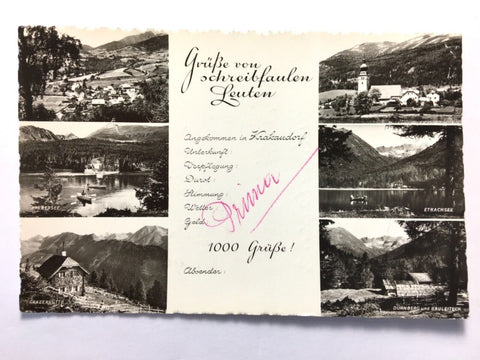 Grüße von
schreibfaulen
Leuten
Angekommen in Krakaudorf
Unterkunft:
Verpflegung:
Durst:
Stimmung:
Wetter:
Geld:
Prima
1000 Grüße!
Absender:
ETRACHSEE
GRAZERHÜTTE